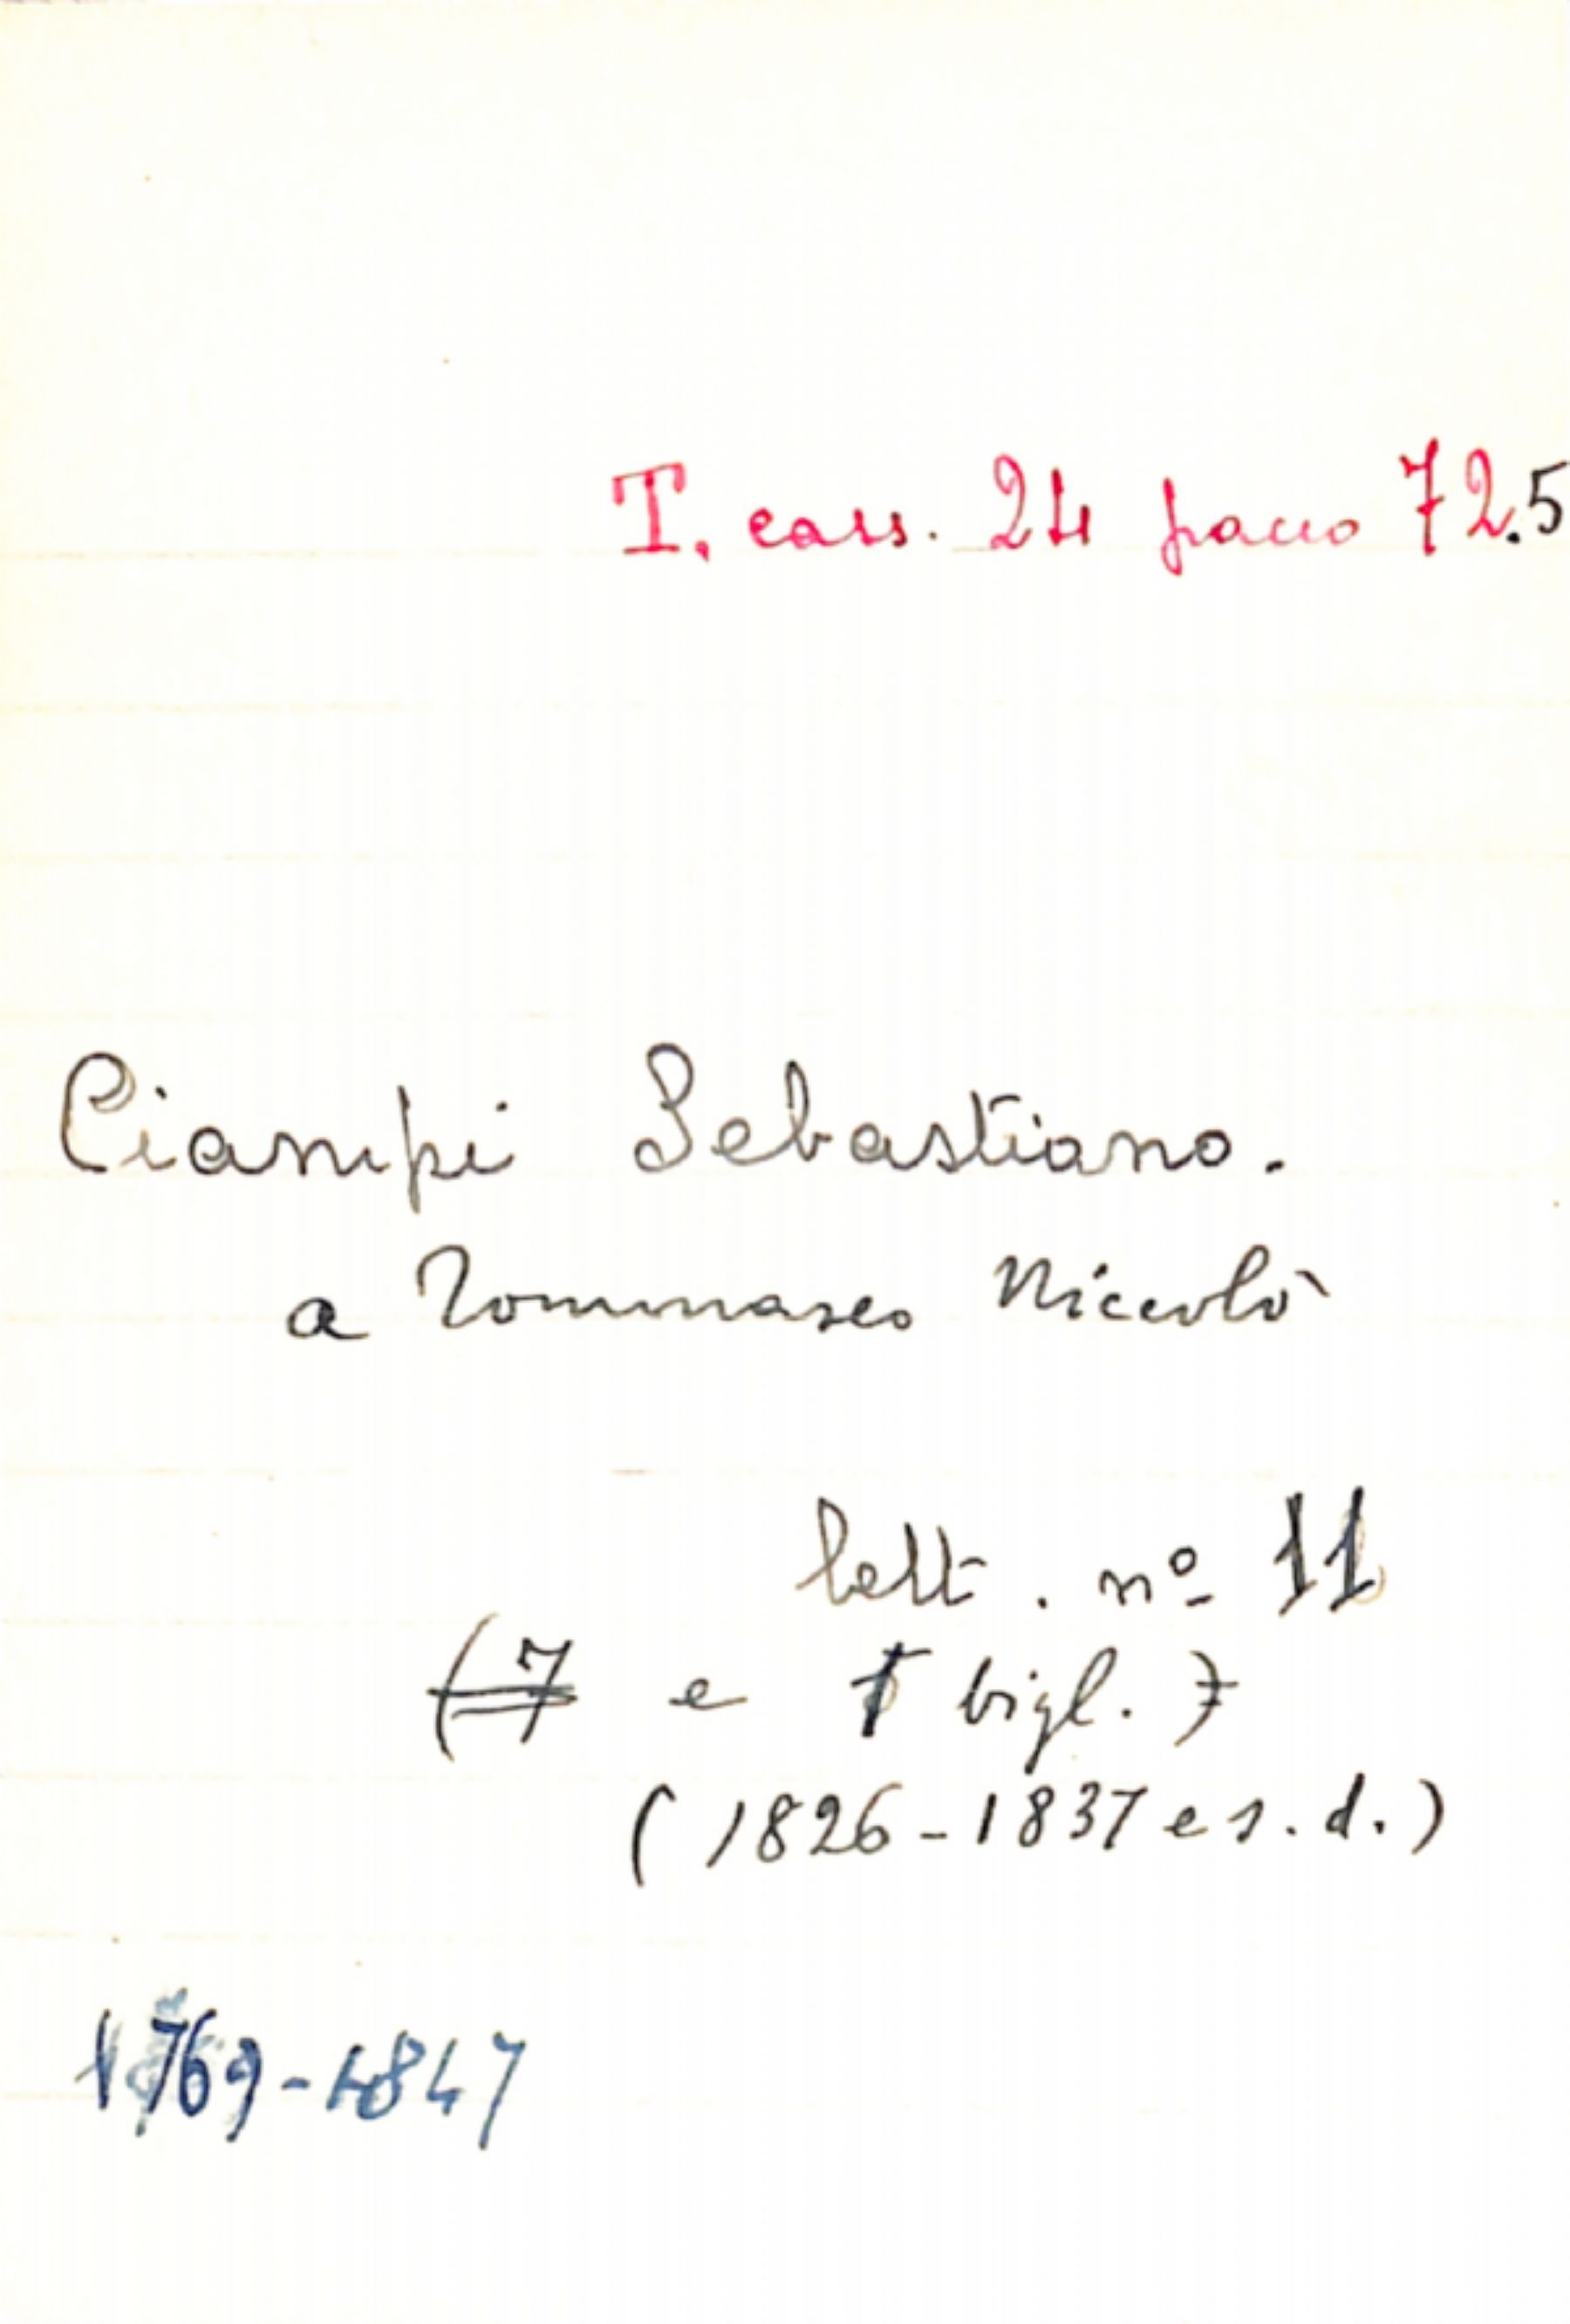 T. cass. 24 pacco 72.5
Ciampi Sebastiano.
a Tommaseo Niccolò
lett. nº 11
(7 e 1 bigl.)
(1826-1837 e s.d.)
1769-1847